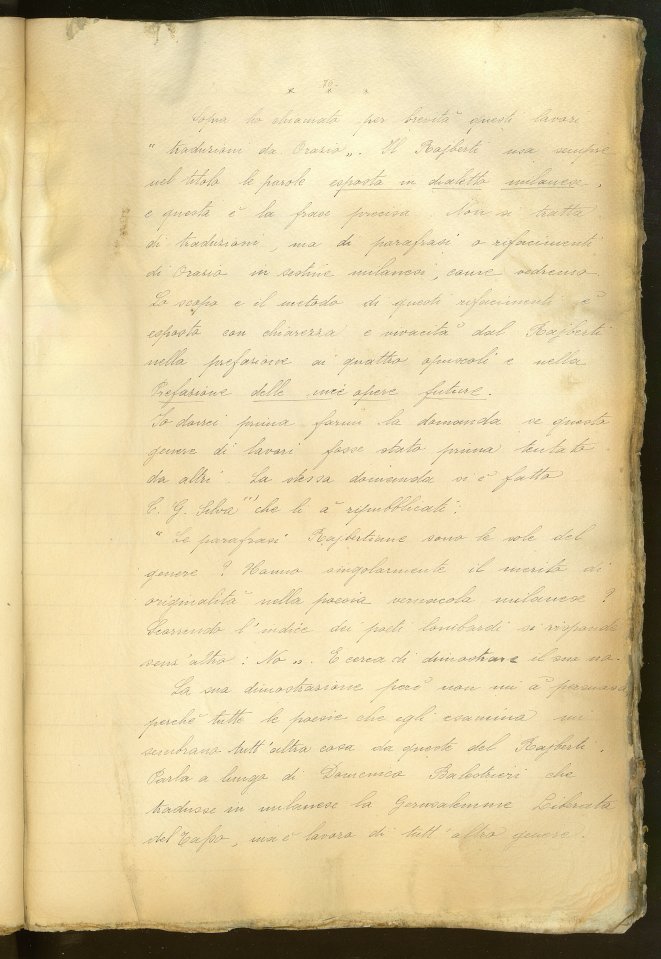 70.
* * *
Sopra ho chiamato per brevità questi lavori
“ traduzioni da Orazio „. Il Rajberti usa sempre
nel titolo le parole esposta in dialetto milanese,
e questa è la frase precisa. Non si tratta
di traduzioni, ma di parafrasi o rifacimenti
di Orazio in sestine milanesi, come vedremo.
Lo scopo e il metodo di questi rifacimenti è
esposto con chiarezza e vivacità dal Rajberti
nella prefazione ai quattro opuscoli e nella
Prefazione delle mie opere future.
Io dovrei prima farmi la domanda se questo
genere di lavori fosse stato prima tentato
da altri. La stessa domanda si è fatto
E. G. Selva (1) che li à ripubblicati:
“ Le parafrasi Rajbertiane sono le sole del
genere? Hanno singolarmente il merito di
originalità nella poesia vernacola milanese?
Scorrendo l'indice dei poeti lombardi si risponde
senz'altro: No „. E cerca di dimostrare il suo no.
La sua dimostrazione però non mi à persuaso
perchè tutte le poesie che egli esamina mi
sembrano tutt'altra cosa da queste del Rajberti.
Parla a lungo di Domenico Balestrieri che
tradusse in milanese la Gerusalemme Liberata
del Tasso, ma è lavoro di tutt'altro genere.